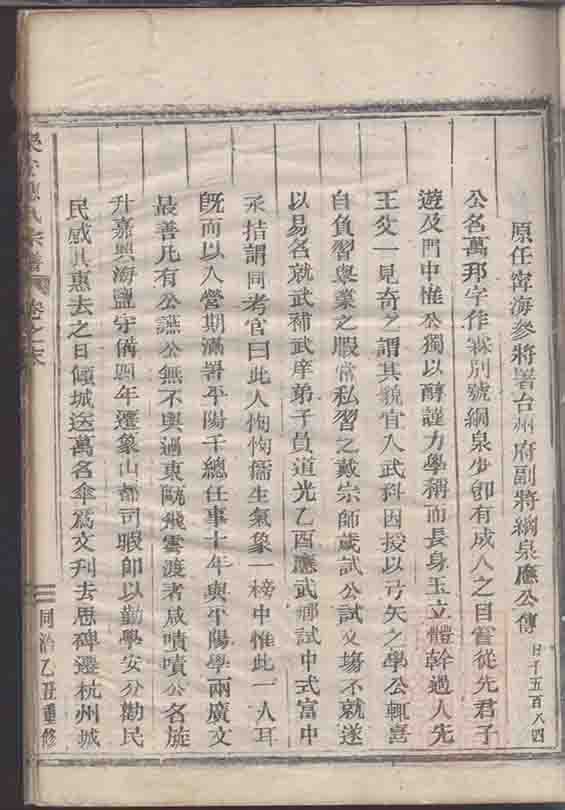 原任甯海參將署台州府副將綱泉應公傳
日千五百八四
公名萬邦字作霖別號綱泉少即有成人之目嘗從先君子
遊及門中惟公獨以醇謹力學稱而長身玉立體幹過人先
王父一見奇之謂其貌宜入武科因授以弓矢之學公輒喜
自負習舉業之暇常私習之戴宗師歲試公試文場不就遂
以易名就武補武庠弟子員道光乙酉應武鄉試中式富中
丞拮謂同考官曰此人恂恂儒生氣象一榜中惟此一人耳
既而以入營期滿署平陽千總任事十年與平陽學兩廣文
最善凡有公讌公無不與過東甌飛雲渡者咸嘖嘖公名旋
升嘉興海鹽守備閱年遷象山都司暇即以勤學安分勸民
民感其惠去之日傾城送萬名傘爲文刊去思碑遷杭州城
氏宗譜
卷之末
同治乙丑重修